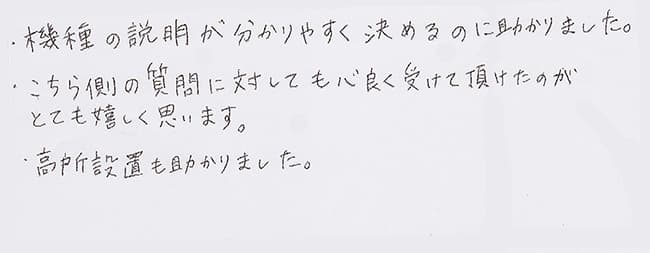 ・機種の説明が分かりやすく決めるのに助かりました。
・こちら側の質問に対しても心良く受けて頂けたのが
とても嬉しく思います。
・高所設置も助かりました。